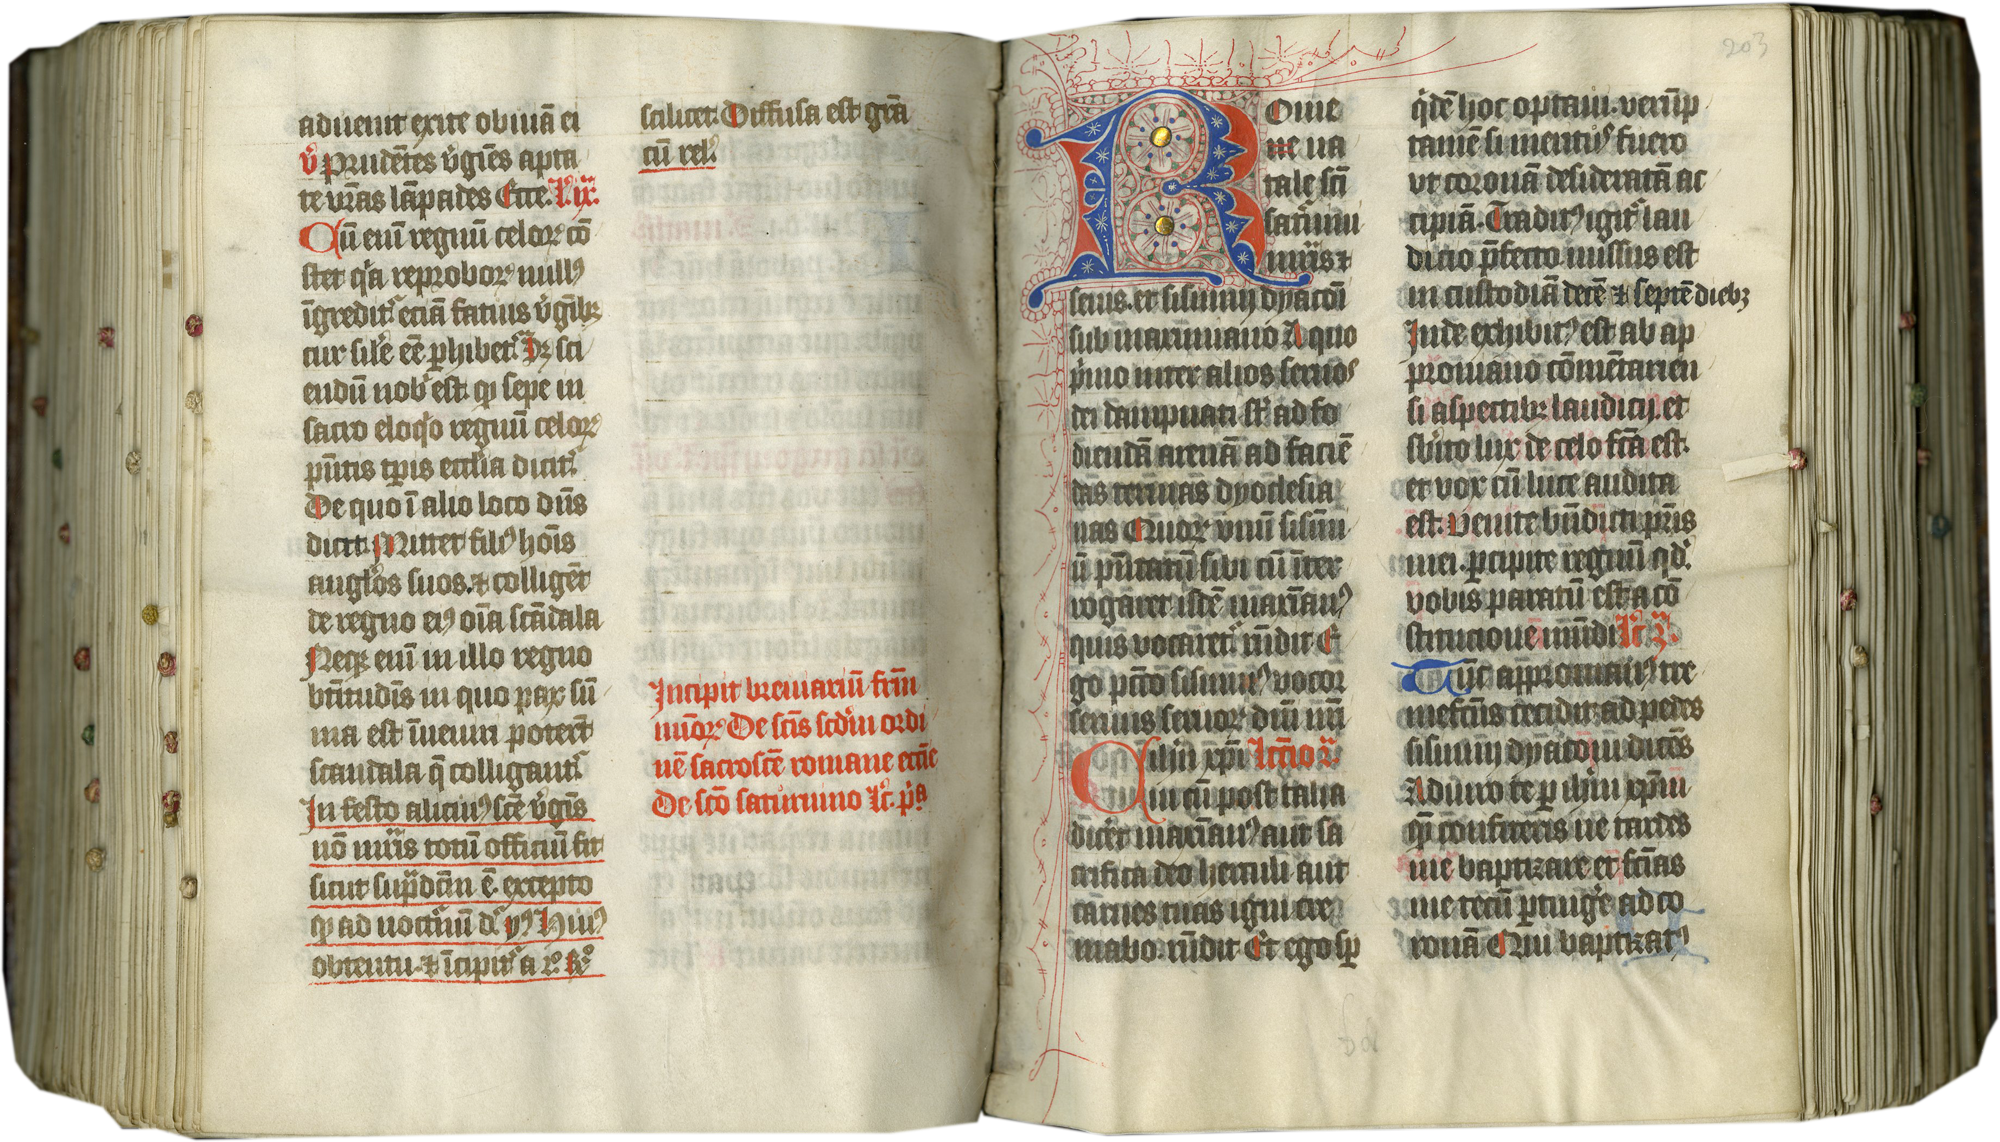 aduenit exite obuiā ei
v̄ prudētes v̄gīes apta
te vr̄as lāpades Ecce. l. ix.
Cū eni᷒ regnū celoꝝ cō
stet q̇a reproboꝝ null᷒
īgredit᷑ eciā fatuis v̄gībꝫ
cur sil̄e eē ꝑhibet᷑. Sꝫ sci
endū nob᷒ est ꝙ sepe in
sacro eloq̇o regnū celoꝝ
pn̄tis tꝑis ecc̄lia dicit᷑.
De quo ī alio loco dn̄s
dicit. Mittet fili᷒ hoīs
angl̓os suos. ⁊ colligēt
de regno ei᷒ oīa scādala
Neqꝫ eni᷒ in illo regno
bt̄itudīs in quo pax sū
ma est īueniri poterūt
scandala q̄ colligant᷑.
In festo alicui᷒ scē v̄gīs
nō mr̄is totū officiū fit
sicut sup̄dcm̄ ē. excepto
ꝙ ad noct᷑nū d᷑. ym̓ Hui᷒
obtentu. ⁊ īcipit᷑ a
scilicet. Diffusa est gr̄a
cū rel̓.
Incipit breuiariū fr̄m
mīoꝝ De scīs scd̄m ordi
nē sacroscē romane eccl̄ie
De scō saturnino lc̄. p̄a
203
Ome
ne na
tale sci
saturni
ni mr̄is ⁊
senis. et sisinnij dyaconi
sub maximiano A quo
p̓mo inter alios seruos
dei dampnati st̄ ad fo
diendā arenā ad faciē
das termas dyoclesia
nas Quoꝝ vnū sisinni
ū pn̄tatū sibi cū īter
rogaret isdē maxīan᷒
quis vocaret᷑ rn̄dit E
go pctō̄r sisinni᷒ vocor
seruus seruoꝝ dn̄i nr̄i
ihū xp̄i lectio ij.
Cui cū post talia
dic̓et maxīan᷒ aut sa
crifica deo herculi aut
carnes tuas igni cre
mabo. rn̄dit Et ego sp̄
q̇dē hoc optaui. verūp
tamē si meruit᷒ fuero
vt coronā desideratā ac
cipiā. Tradit᷒ igit᷑ lau
dicio p̄fecto missus est
in custodiā decē ⁊ septē diebꝫ
Inde exhibit᷒ est ab ap
proniano cōmētarien
si aspectibꝫ laudicij. et
sb̓ito lux de celo fc̄a est.
et vox cū luce audita
est. Venite bn̄dicti pr̄is
mei. ꝑcipite regnū qd̓.
vobis paratū est a cō
stitucione mūdi lc̄. iij.
Tūc aꝓnian᷒ tre
mefcūs cecidit ad pedes
sisinnij dyaconi dicēs
Adiuro te ꝑ ihm̄ xp̄m
ꝙ confiteris ne tardes
me baptizare et fcias
me tecū ꝑtinḡe ad co
ronā Qui baptizat᷒